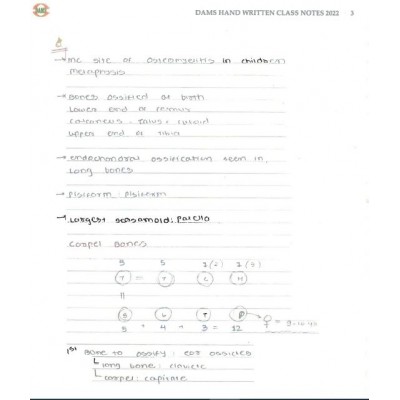 DAMS HAND WRITTEN CLASS NOTES 2022 3
→ mc site of osteomyelitis in children
metaphysis
→ Bones ossified at birth
Lower end of femur
calcaneus, talus, cuboid
upper end of tibia
→ endochondral ossification seen in
Long bones
→ Pisiform: Pisiform
→ Largest sesamoid: Patella
Carpel Bones
T = T C H
=
S L T P
+ 4 + 3 = 12
1st Bone to ossify: ear ossicles
long bone: clavicle
carpel: capitate